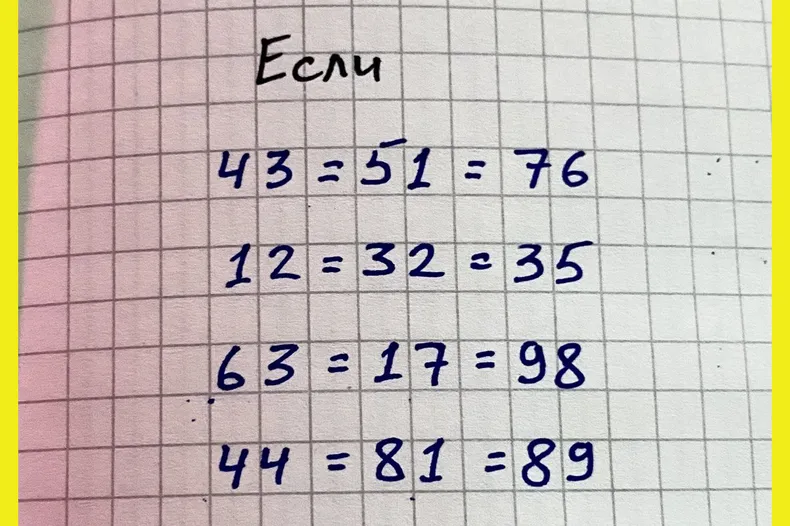 Если
43 = 51 = 76
12 = 32 = 35
63 = 17 = 98
44 = 81 = 89